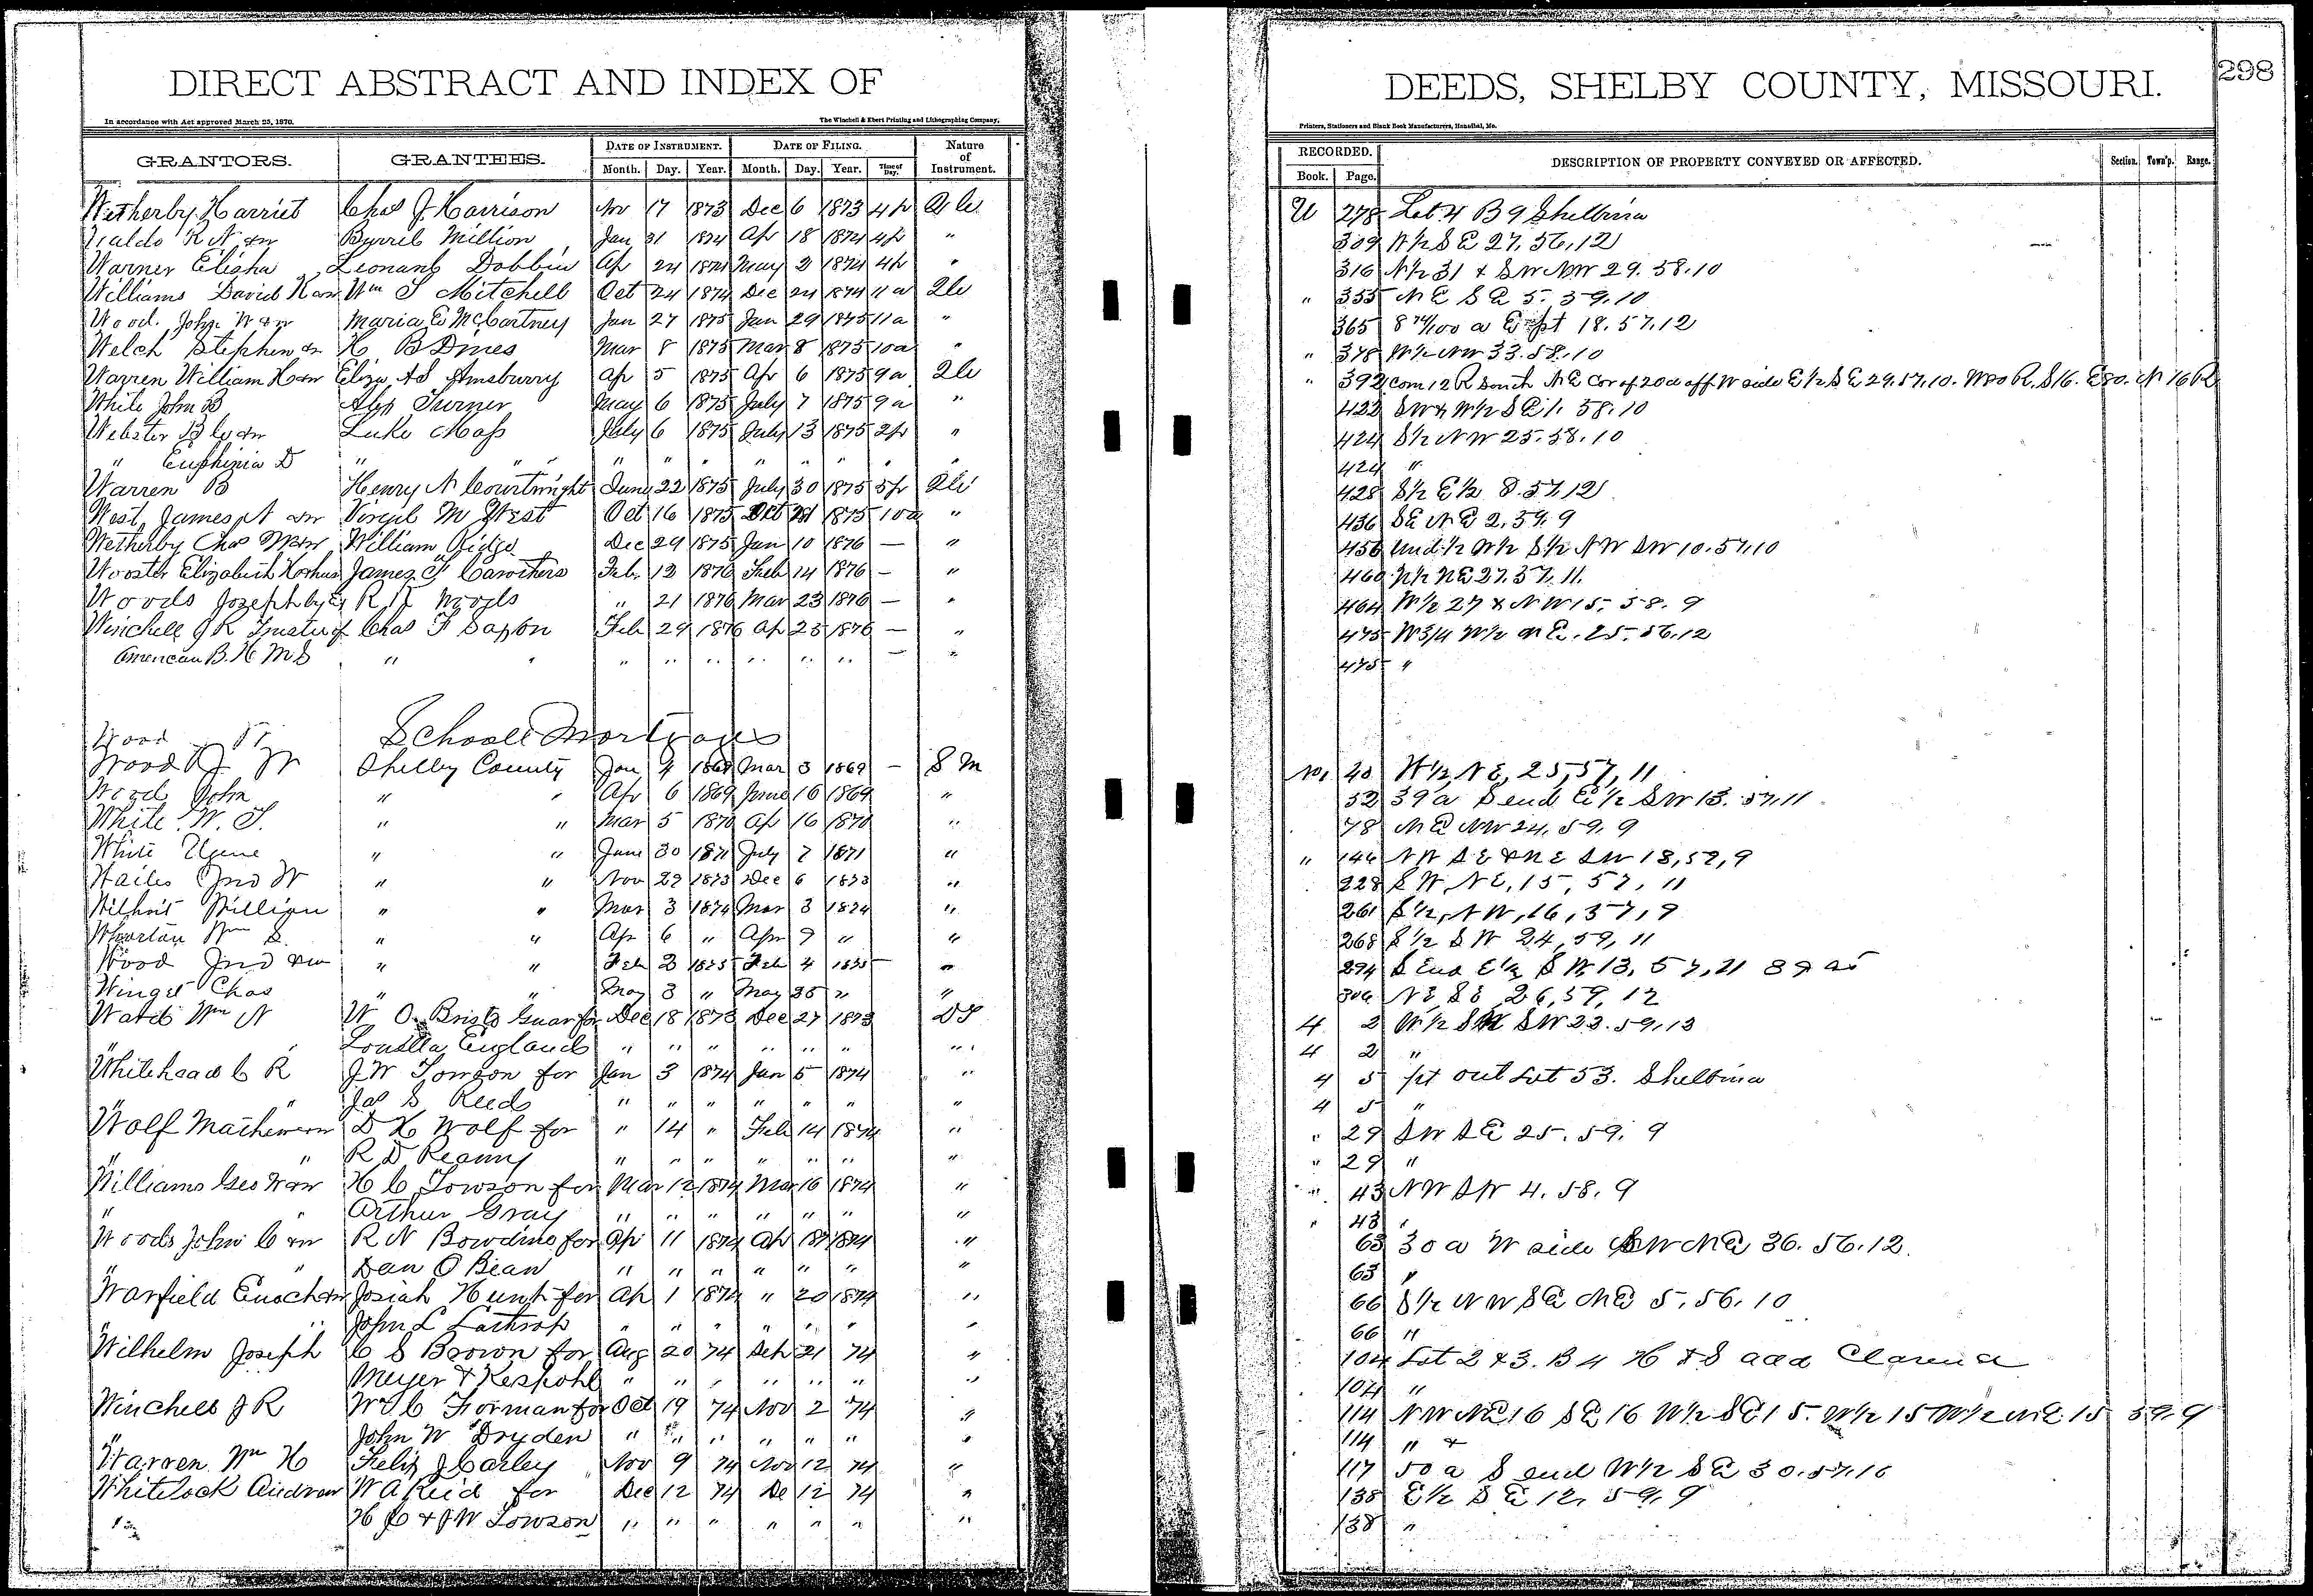 DIRECT ABSTRACT AND INDEX OF
In accordance with Act approved March 25, 1870. The Winchell & Ebert Printing and Lithographing Company,
GRANTORS. GRANTEES. DATE OF INSTRUMENT. DATE OF FILING. Nature of Instrument.
Month. Day. Year. Month. Day. Year. Time of Day.
Wetherby Harriet Chas J. Harrison Nov 17 1873 Dec 6 1873 4p
Waldo R N &w Burrel Million Jan 31 1874 Ap 18 1874 4p "
Warner Elisha Leonard Dobbin Ap 24 1874 May 2 1874 4p "
Williams David K &w Wm T Mitchell Oct 24 1874 Dec 24 1874 11a
Wood John W &w Maria E McCartney Jan 27 1875 Jan 29 1875 11a "
Welch Stephen &w H B Dines Mar 8 1875 Mar 8 1875 10a "
Warren William H &w Eliza AS Amsburry Ap 5 1875 Ap 6 1875 9a
White John B Alex Turner May 6 1875 July 7 1875 9a "
Webster B C &w Luke Mass July 6 1875 July 13 1875 2p "
" Euphinia D " " " " " " " " "
Warren B Henry N Courtright June 22 1875 July 30 1875 5p
West James N &w Virgil M West Oct 16 1875 Oct 21 1875 10a "
Wetherby Chas W &w William Ridge Dec 29 1875 Jan 10 1876 — "
Wooster Elizabeth & hus James T Carothers Feb 12 1876 Feb 14 1876 — "
Woods Joseph by Ex R R Woods " 21 1876 Mar 23 1876 — "
Winchell J R Trustee of Chas F Saxton Feb 29 1876 Ap 25 1876 — "
American B. H M S " " " " " " " " — "
Wood School Mortgages
Wood J W Shelby County Jan 4 1869 Mar 3 1869 — S M
Wood John " " Apr 6 1869 June 16 1869 "
White W. T. " " Mar 5 1870 Ap 16 1870 "
White Ugene " " June 30 1871 July 7 1871 "
Wailes Jno W " " Nov 29 1873 Dec 6 1873 "
Wilhoit William " " Mar 3 1874 Mar 3 1874 "
Wharton Wm S. " " Apr 6 " Apr 9 " "
Wood Jno &w " " Feb 3 1875 Feb 4 1875 — "
Winget Chas " " May 3 " May 25 " "
Ward Wm N W O. Bristo Guar for Dec 18 1873 Dec 27 1873 DT
" Louella England " " " " " " "
Whitehead C R J W Towson for Jan 3 1874 Jan 5 1874 "
" Jas S Reed " " " " " " "
Wolf Mathew &w D H Wolf for " 14 " Feb 14 1874 "
" " R D Reamy " " " " " " "
Williams Geo W &w H C Towson for Mar 12 1874 Mar 16 1874 "
" " Arthur Gray " " " " " " "
Woods John C &w R N Bowling for Ap 11 1874 Ap 18 1874 "
" " Dan O Bean " " " " " " "
Warfield Enoch &w Josiah Hunt for Ap 1 1874 " 20 1874 "
" " John L Lathrop " " " " " " "
Wilhelm Joseph C S Brown for Aug 20 74 Sep 21 74 "
Meyer & Kespohl " " " " " " "
Winchell J R W C Forman for Oct 19 74 Nov 2 74 "
" John W Dryden " " " " " " "
Warren Wm H Felix J Carley Nov 9 74 Nov 12 74 "
Whitelock Andrew W A Reid for Dec 12 74 De 12 74 "
" H C & J W Towson " " " " " " "
DEEDS, SHELBY COUNTY, MISSOURI.
298
Printers, Stationers and Blank Book Manufacturers, Hannibal, Mo.
RECORDED. DESCRIPTION OF PROPERTY CONVEYED OR AFFECTED. Section. Town'p. Range.
Book. Page.
U 278 Lot 4 B 9 Shelbina
309 W½ S E 27. 56. 12
316 N½ 31 & SW NW 29. 58. 10
" 355 N E S E 5. 59. 10
365 8 74/100 a E pt 18. 57. 12
" 378 W½ NW 33. 58. 10
" 392 com 12 R south N E Cor of 20a off W side E½ S E 29. 57. 10. W 80 R. S 16. E 80. N 16 R
422 SW & W½ S E 1. 58. 10
424 S½ N W 25. 58. 10
424 "
428 S½ E½ 8. 57. 12
436 SE N E 2. 59. 9
456 Und ½ W½ S½ NW SW 10. 57. 10
460 N½ NE 27. 57. 11.
464 W½ 27 & N W 15. 58. 9
475 W 3/4 W½ N E. 25. 56. 12
475 "
No 1 40 W½ N E, 25, 57, 11
52 39 a S end E½ SW 13. 57. 11
78 N E NW 24. 59. 9
" 146 N W S E & N E S W 18, 59, 9
228 S W, N E, 15, 57, 11
261 S½, N W, 16, 57, 9
268 S½ S W 24, 59, 11
294 S End E½ S W 13, 57, 11 39 as
306 N E S E 26, 59, 12
4 2 W½ SW SW 23. 59. 13
4 2 "
4 5 pt out Lot 53. Shelbina
4 5 "
" 29 SW S E 25. 59. 9
" 29 "
" 43 NW SW 4. 58. 9
" 43 "
63 30 a W side SW N E 36. 56. 12.
63 "
66 S½ N W S E N E 5. 56. 10
66 "
104 Lot 2 & 3. B 4 H & S add Clarence
104 "
114 N W N E 16 S E 16 W½ S E 15. W½ 15 W½ N E 15 59. 9
114 " &
117 50 a S end W½ S E 30. 57. 10
138 E½ S E 12. 59. 9
138 "